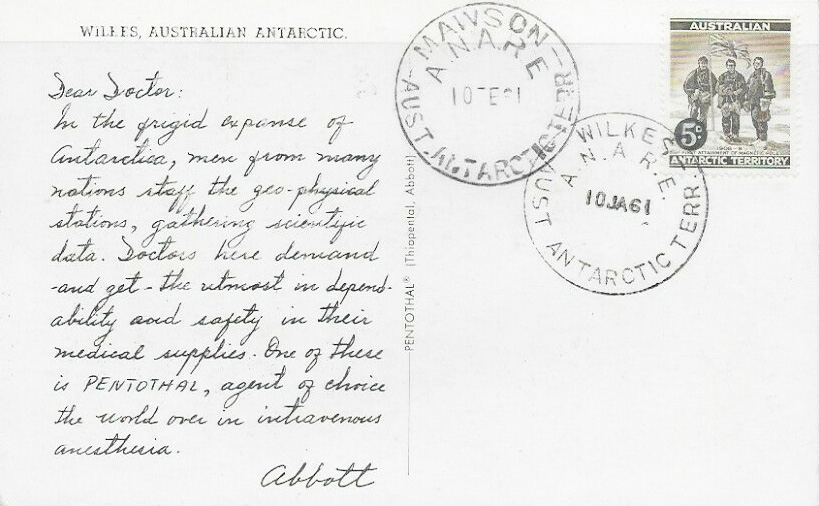 WILKES, AUSTRALIAN ANTARCTIC.
Dear Doctor:
In the frigid expanse of
Antarctica, men from many
nations staff the geo-physical
stations, gathering scientific
data. Doctors here demand
-and get- the utmost in depend-
ability and safety in their
medical supplies. One of these
is PENTOTHAL, agent of choice
the world over in intravenous
anesthesia.
Abbott
PENTOTHAL® (Thiopental, Abbott)
MAWSON
A.N.A.R.E
AUST. ANTARCTIC TERR
WILKES
A.N.A.R.E.
10JA61
AUST ANTARCTIC TERR.
AUSTRALIAN
5c
ANTARCTIC TERRITORY